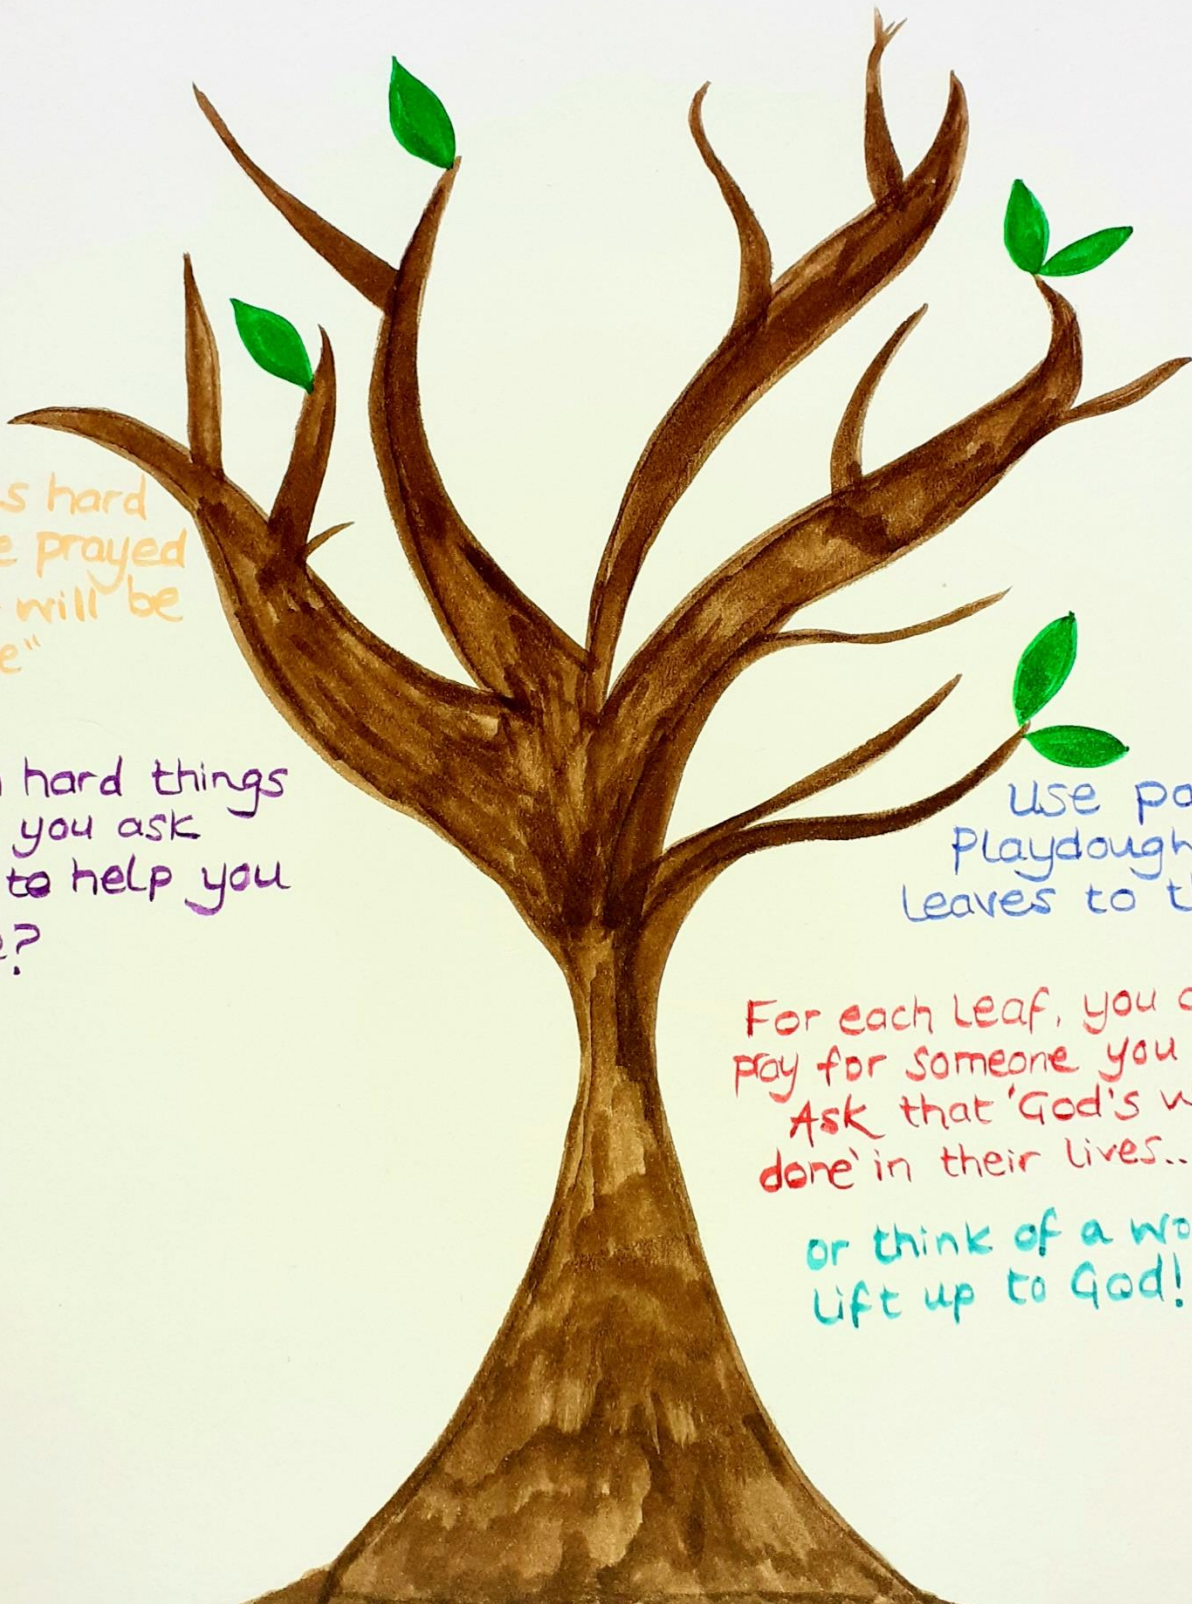 hard
prayed
will be
hard things
you ask
to help you
use
Playdough
Leaves to
For each Leaf, you
pray for someone you
Ask that 'God's
done' in their lives..
or think of a
Lift up to God!